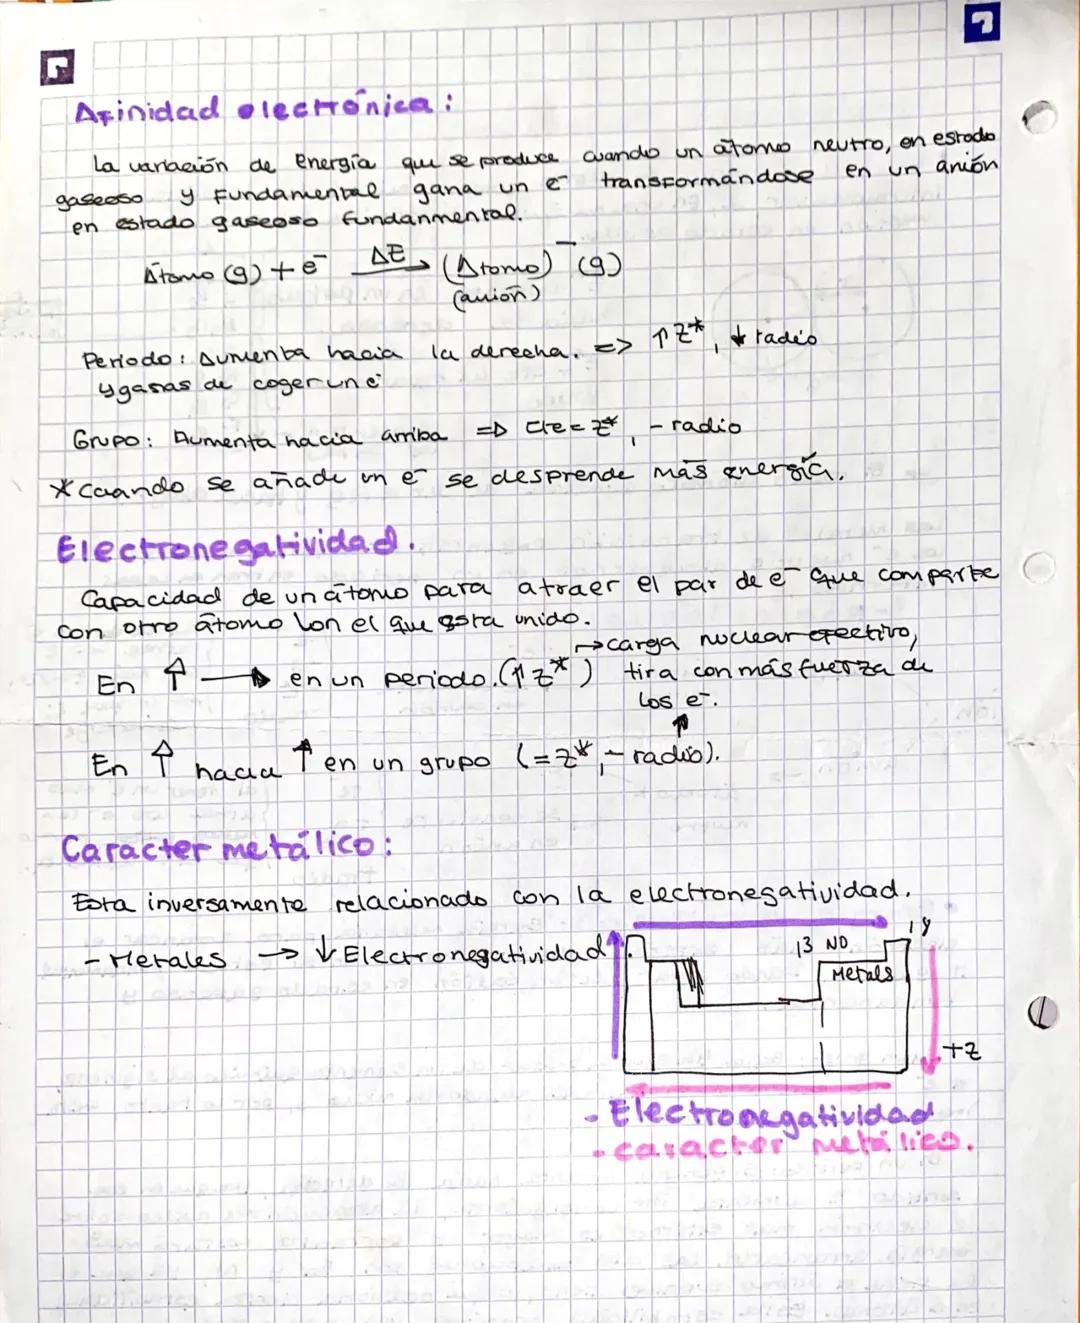 Afinidad electrónica:
La variación de Energía que se produce cuando un átomo neutro, en estado
gaseoso y Fundamental gana un e⁻ transformándose en un anión
en estado gaseoso fundanmental.
Átomo (g) + e⁻ ΔE → (Átomo)⁻ (g)
(anión)
Periodo: Aumenta hacia la derecha. => ↑Z*, ↓ radio
y ganas de coger un e⁻
Grupo: Aumenta hacia arriba => cte = Z*, - radio
*Cuando se añade un e⁻ se desprende más energía.
Electronegatividad.
Capacidad de un átomo para atraer el par de e⁻ que comparte
con otro átomo con el que esta unido.
→ carga nuclear efectivo,
En ↑ → en un periodo. (↑Z*) tira con más fuerza de
los e⁻.
En ↑ hacia ↑ en un grupo (= Z*, - radio).
Caracter metálico:
Esta inversamente relacionado con la electronegatividad.
- Metales → ↓ Electronegatividad
13 NO
Metals
+Z
- Electronegatividad
- caracter metálico.